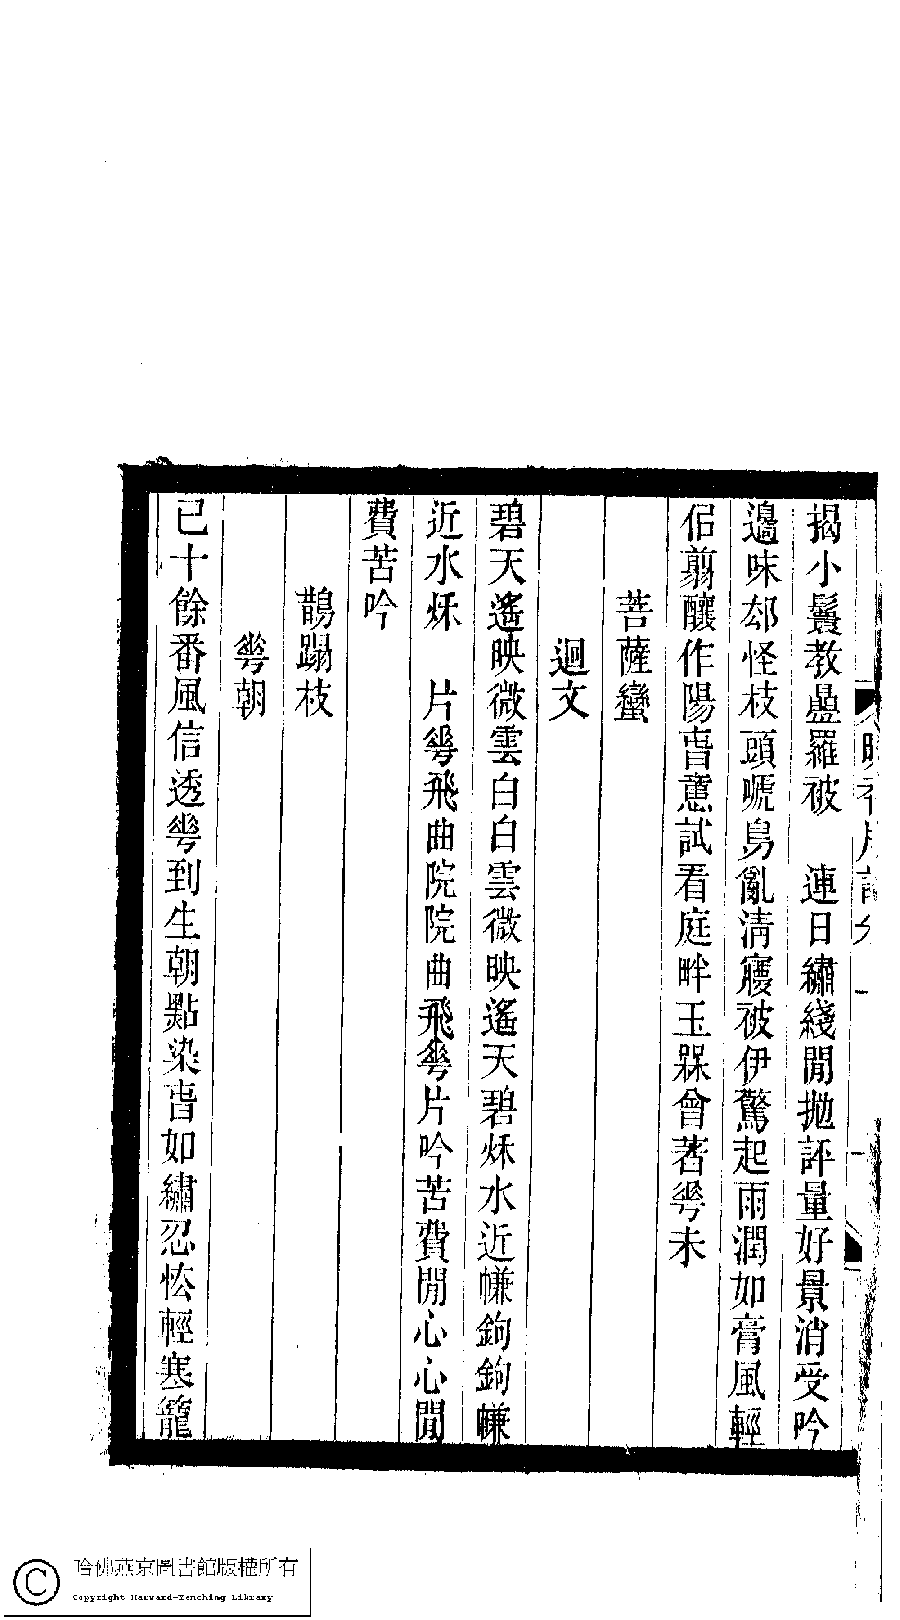 揭小鬟教曡羅被　連日繡綫閒抛評量好景消受吟
邊味郤怪枝頭嗁鳥亂清寱被伊驚起雨潤如膏風輕
佀翦釀作陽旾意試看庭畔玉槑曾著𠌶未
菩薩蠻
迴文
碧天遙映微雲白白雲微映遙天碧秌水近㡘鉤鉤㡘
近水秌　片𠌶飛曲院院曲飛𠌶片吟苦費閒心心閒
費苦吟
鵲蹋枝
𠌶朝
已十餘番風信透𠌶到生朝點染旾如繡忍恡輕寒籠
哈佛燕京圖書館版權所有
Copyright Harvard-Yenching Library